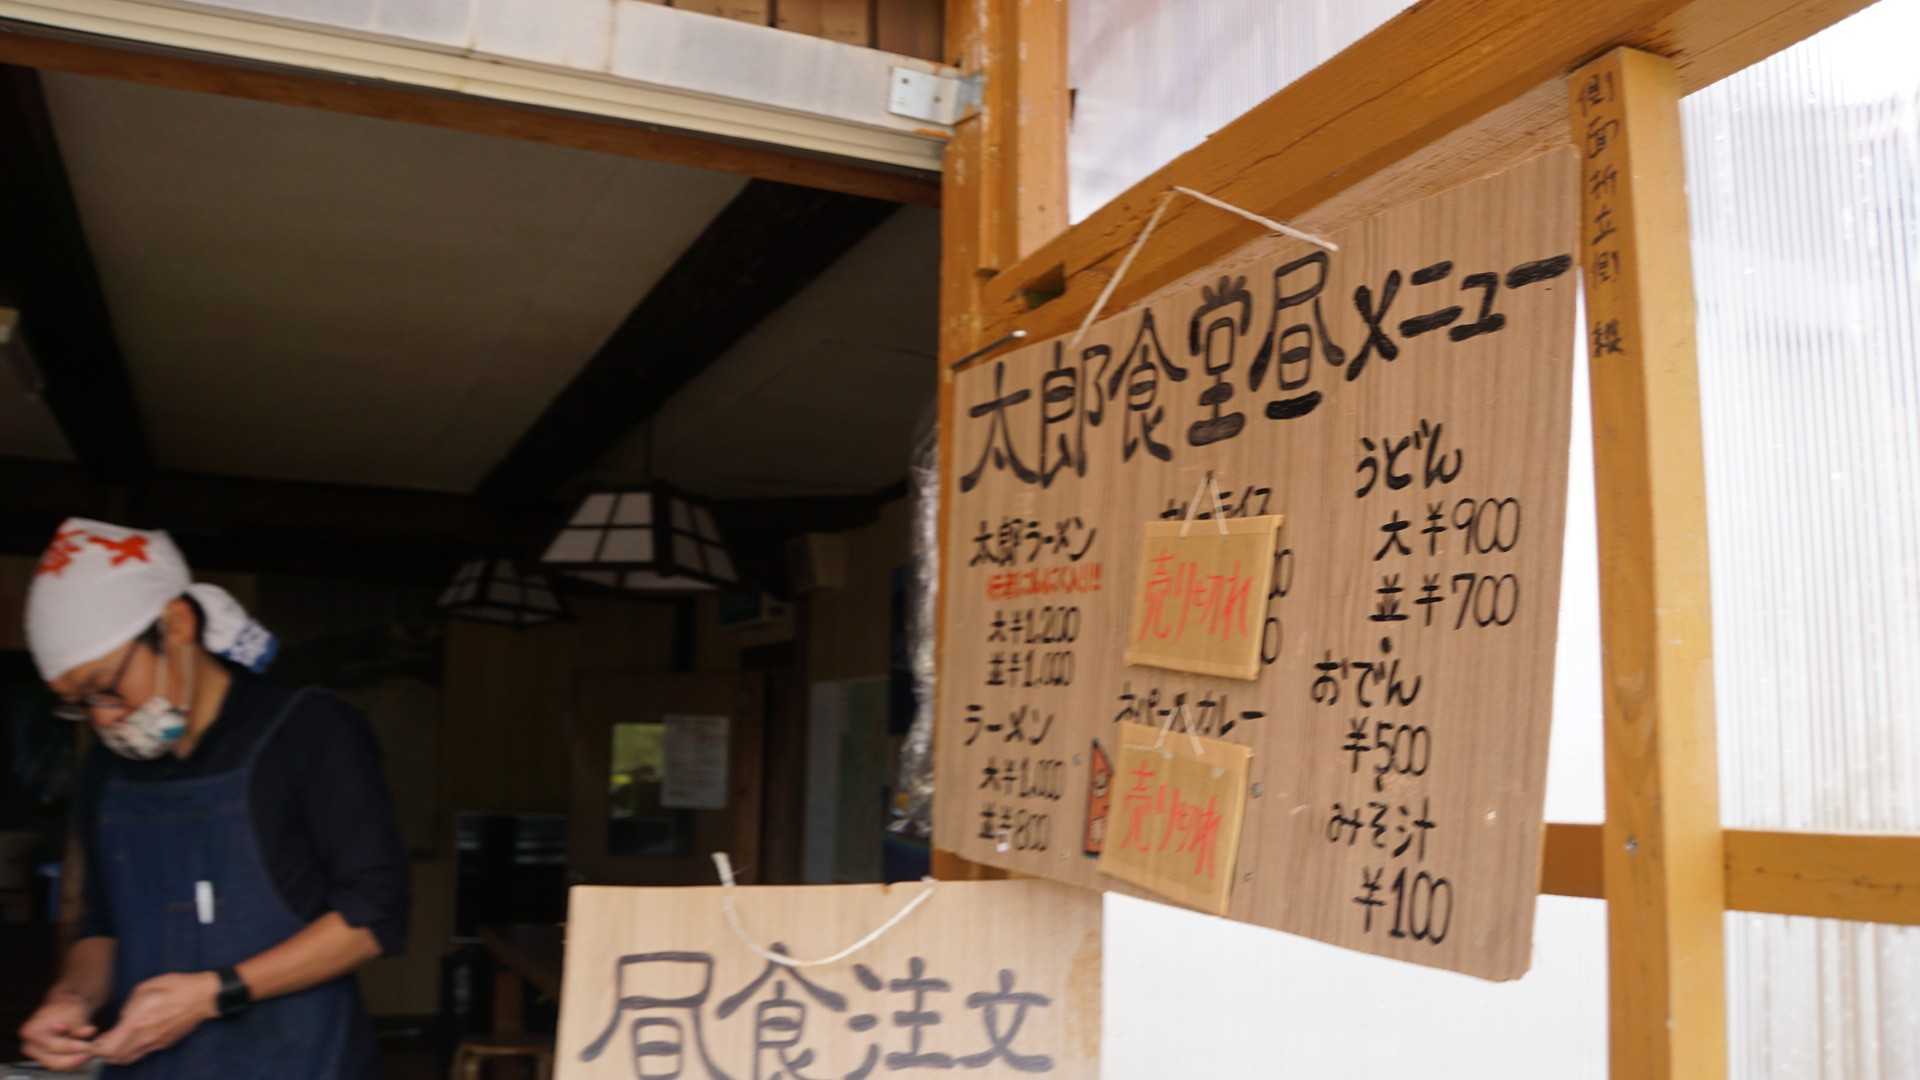 太郎食堂昼メニュー
太郎ラーメン
行者にんにく入り!!
大¥1,200
並¥1,000
ラーメン
大¥1,000
並¥800
カレーライス
売り切れ
カレー
売り切れ
うどん
大¥900
並¥700
おでん
¥500
みそ汁
¥100
昼食注文